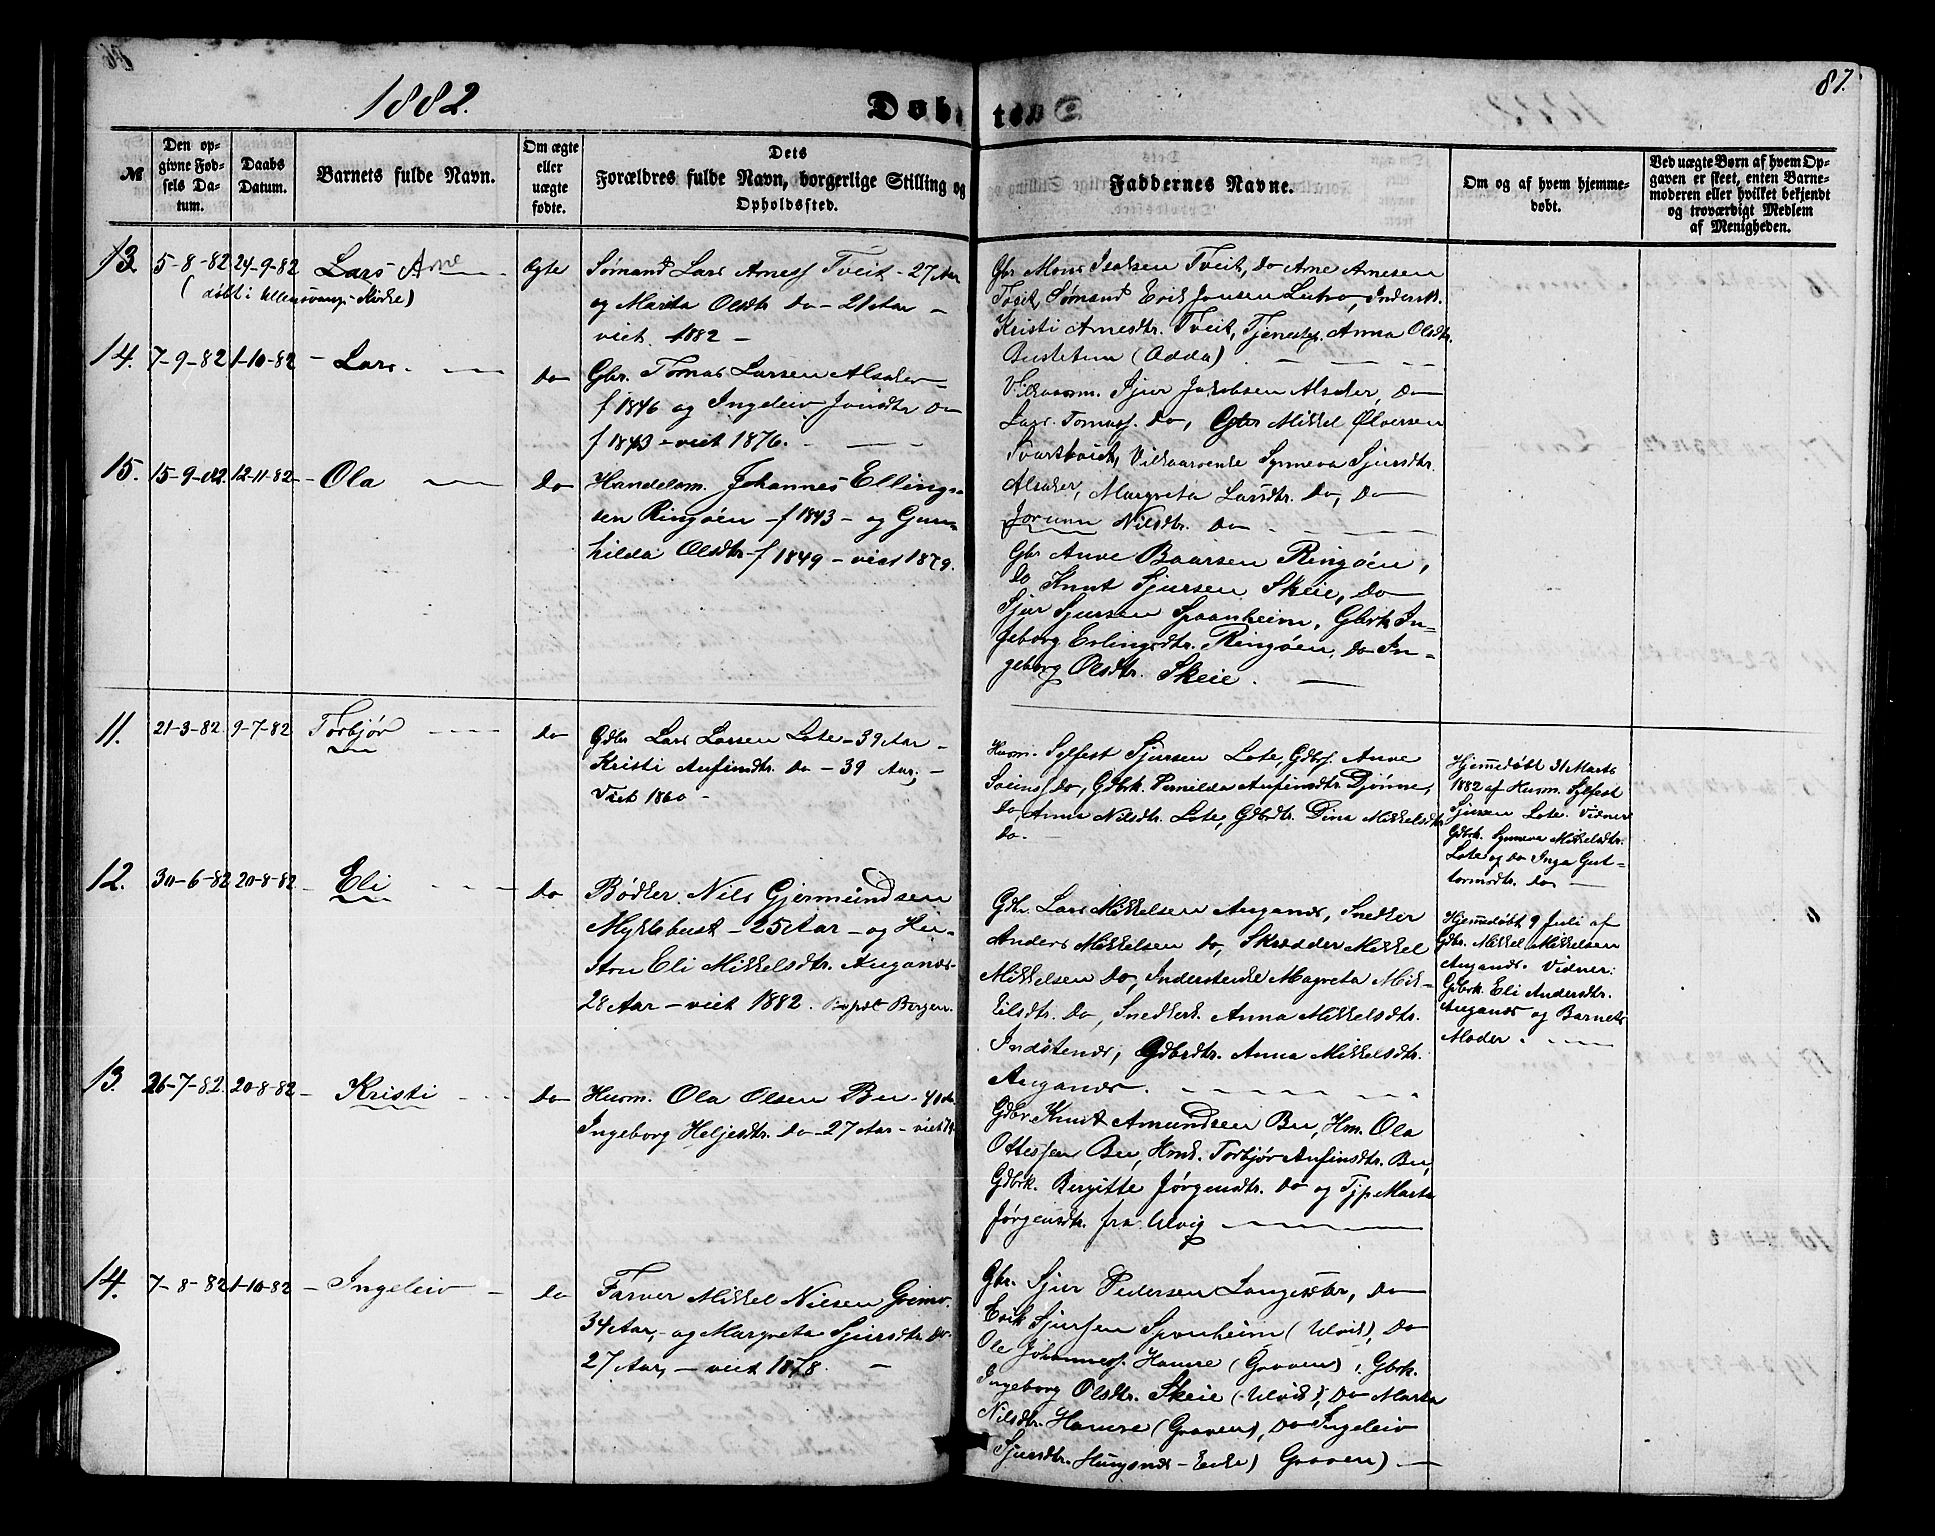 1882.
Døbte
87.
№
Den op-
givne Fød-
sels Da-
tum.
Daabs
Datum.
Barnets fulde Navn.
Om ægte
eller
uægte
fødte.
Dets
Forældres fulde Navn, borgerlige Stilling og
Opholdssted.
Faddernes Navne.
Om og af hvem hjemme-
døbt.
Ved uægte Børn af hvem Op-
gaven er skeet, enten Barne-
moderen eller hvilket bekjendt
og troværdigt Medlem
af Menigheden.
13. 5-8-82 24-9-82 Lars Arne
(døbt i Ullensvangs Kirke)
Ægte
Sømand Lars Arness Tveit - 27 Aar
og Marita Olsdtr do - 21 Aar -
viet 1882 -
Gbr Mons Isaksen Tveit, do Arne Arnesen
Tveit, Sømand Erik Jonsen Lutro, Inderstk.
Kristi Arnesdtr. Tveit, Tjenestep. Anna Olsdtr.
Bustetun (Odda)
14. 7-9-82 1-10-82 - Lars
do
Gbr. Tomas Larsen Alsaker
f 1846 og Ingeleiv Jonsdtr do
f 1843 - viet 1876.
Sjur Jakobsen Alsaker, do
Lars Tomass. do, Gbr Mikkel Ølversen
Svartveit, Synneva Sjursdtr.
Alsaker, Margreta Larsdtr. do, do
Jorunn Nilsdtr. do
15. 15-9-82. 12-11-82 - Ola
do
Handelsm. Johannes Ellings-
sen Ringøen - f 1843 - og Gun-
hilda Olsdtr - f 1849 - viet 1879.
Gbr Anve Baarsen Ringøen,
do Knut Sjursen Skeie, do
Sjur Sjursen Spaanheim, Gbrk In-
geborg Erlingsdtr. Ringøen, do In-
geborg Olsdtr. Skeie.
11. 21-3-82. 9-7-82 Torbjør
do
Gdbr Lars Larsen Lote - 39 Aar -
Kristi Aufinsdtr. do - 39 Aar; -
Viet 1860 -
Husm. Sylfest Sjursen Lote, Gdbrs. Anve
do, Gdbrk. Pernilda Aufinsdtr. Djønne,
do Anna Nilsdtr. Lote, Gdbrdtr. Dina Mikkelsdtr.
do.
Hjemmedøbt 31 Marts
1882 af Husm. Sylfest
Sjursen Lote. Vidner
Gdbrk. Synneva Mikkelsdtr.
Lote og do Inga Gut-
tormsdtr. do
12. 30-6-82 20-8-82 - Eli
do
Bødker Nils Gjermundsen
Myklebust - 25 Aar - og Hu-
stru Eli Mikkelsdtr. Auganæs -
28 Aar - viet 1882. Bergen.
Gdbr. Lars Mikkelsen Auganæs, Snedker
Anders Mikkelsen do, Skrædder Mikkel
Mikkelsen do, Inderstenke Magreta Mik-
kelsdtr. do, Snedkerk. Anna Mikkelsdtr.
Indstenæs, Gdbrdtr. Anna Mikkelsdtr.
Auganæs.
Hjemmedøbt 9 Juli af
Gdbr. Mikkel Mikkelsen
Auganæs. Vidner:
Gdbrk. Eli Andersdtr.
Auganæs og Barnets
Moder.
13. 26-7-82. 20-8-82 - Kristi
do
Husm. Ola Olsen Bu - 40 Aar
Ingeborg Heljesdtr. do - 27 Aar - viet
Gdbr Knut Amundsen Bu, Hm. Ola
Ottessen Bu, Hmk. Torbjør Aufinsdtr. Bu,
Gdbrk. Bergitte Jørgensdtr. do og Tjp Marta
Jørgensdtr. fra Ulvig
14. 7-8-82 1-10-82 - Ingeleiv
do
Farver Mikkel Nilsen G 
34 Aar, - og Margreta Sjursdtr. do -
27 Aar, - viet 1878. -
Gbr. Sjur Pedersen Langesæter, do
Erik Sjursen Sponheim (Ulvik), do
Ole Johanness. Hamre (Graven), Gbrk.
Ingeborg Olsdtr. Skeie (Ulvik), do Marta
Nilsdtr. Hamre (Graven), do Ingeleiv
Sjursdtr. Graven)